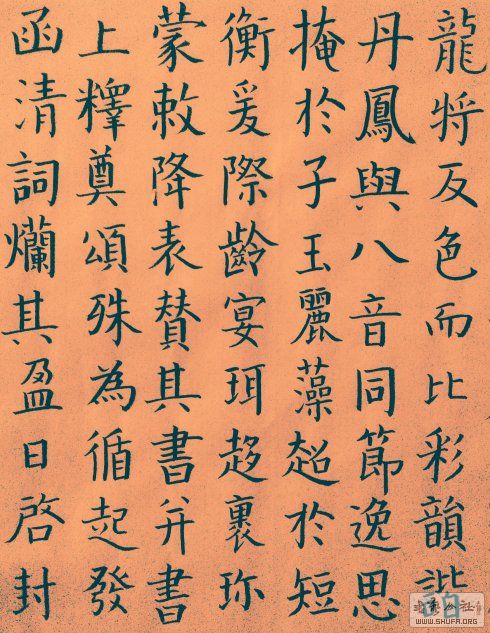 龍將反色而比彩韻諧
丹鳳與八音同節逸思
掩於子玉麗藻超於短
衡爰際齡宴珥趍裹珎
蒙敕降表賛其書并書
上釋奠頌殊為循起發
函清詞爛其盈日啓封
WWW.SHUFA.ORG